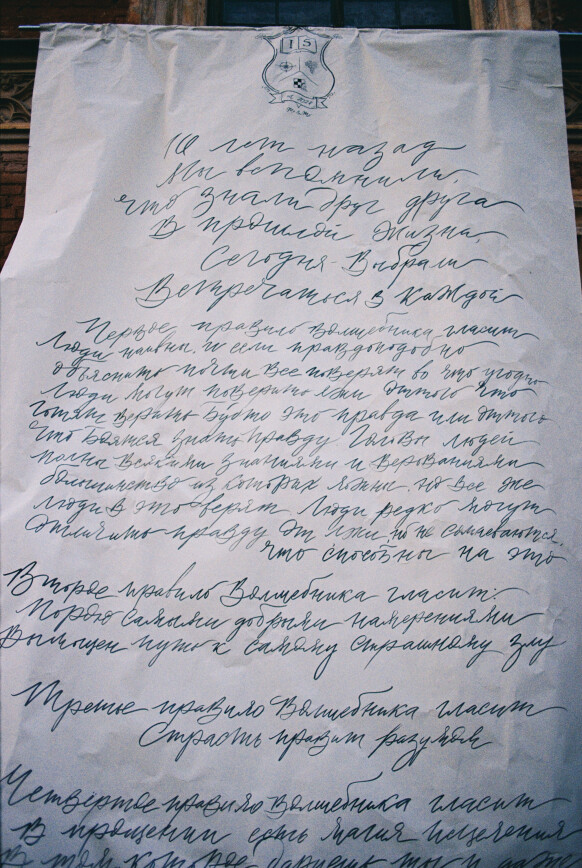 IS
10 лет назад
Мы вспомнили,
что знали друг друга
В прошлой жизни,
Сегодня Выбрали
Встречаться в каждой
Первое правило Волшебника гласит
Люди наивны. И если правдоподобно
объяснить почти все поверят во что угодно
Люди могут поверить лжи от того что
хотят верить будто это правда или от того
что боятся знать правду Головы людей
полны всякими знаниями и верованиями
большинство из которых ложны, но все же
люди в это верят. Люди редко могут
отличить правду от лжи, но не сомневаются,
что способны на это
Второе правило Волшебника гласит:
Порою самыми добрыми намерениями
Вымощен путь к самому страшному злу
Третье правило Волшебника гласит
Страсть правит разумом
Четвертое правило Волшебника гласит
В прощении есть магия исцеления
В том, которое даришь ты и в том